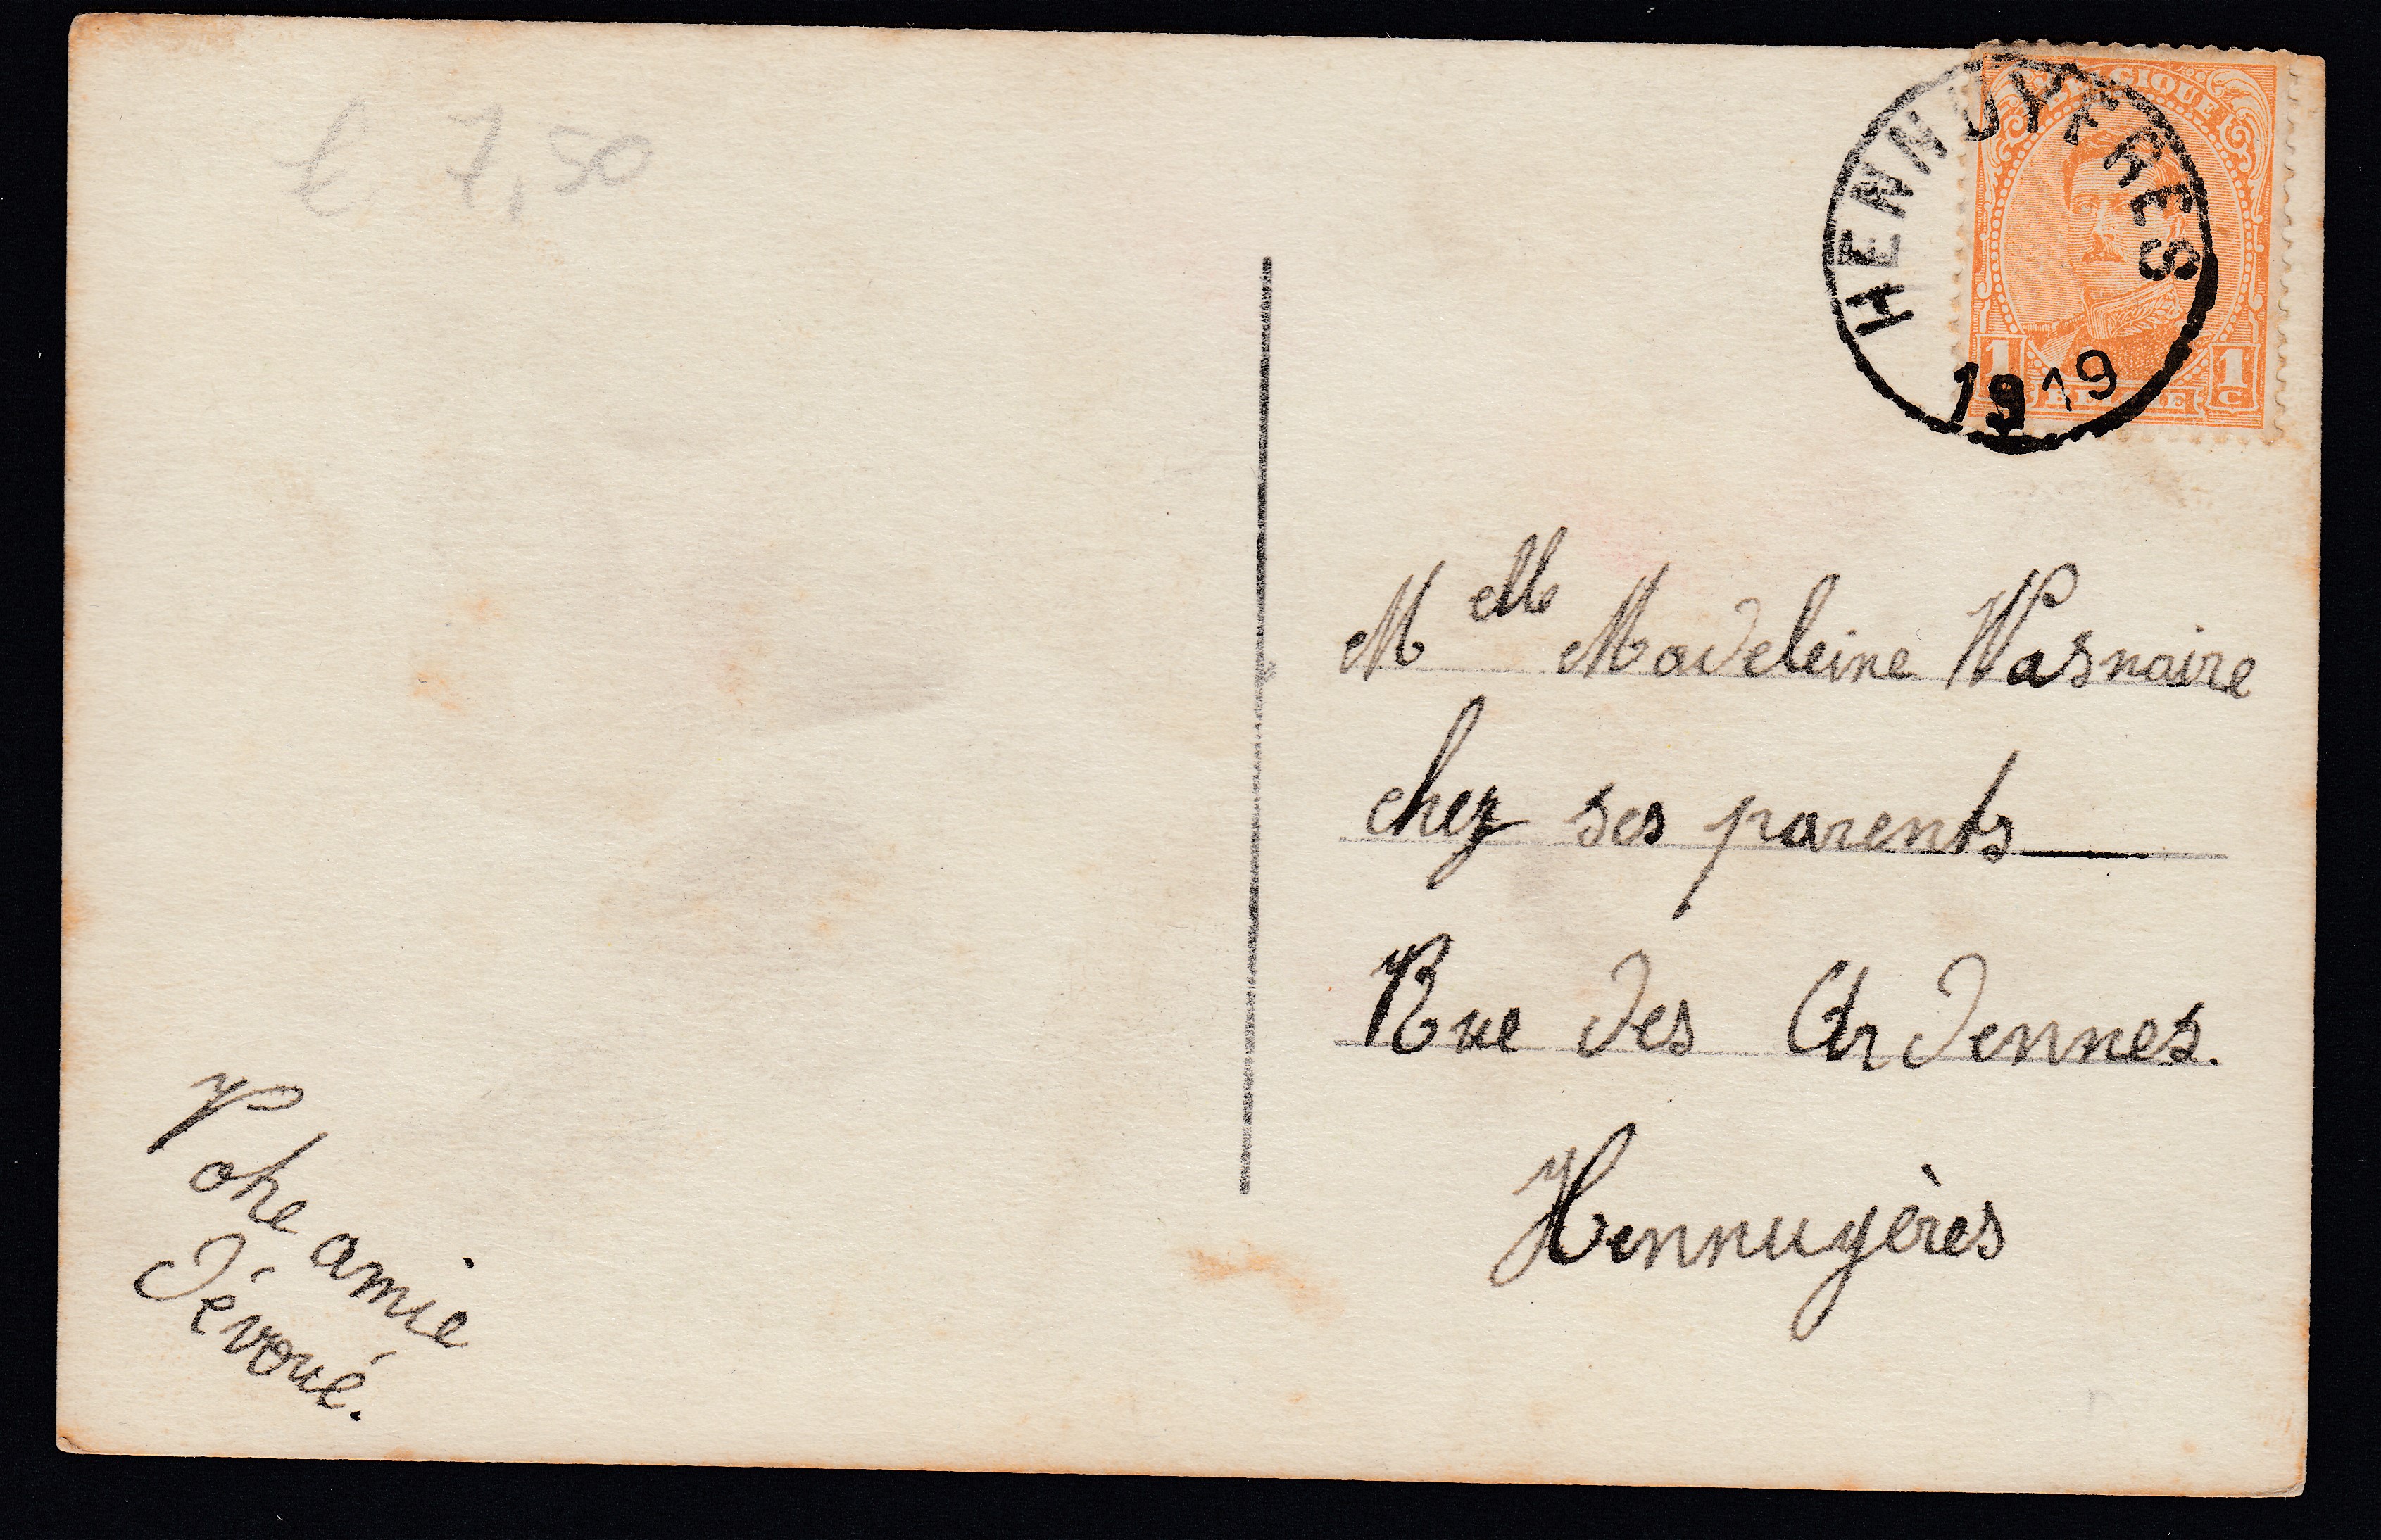 € 7,50
HENNUYERES
1919
BELGIQUE
1 1
C
Melle Madeleine Wasnaire
chez ses parents
Rue des Ardennes.
Hennuyères
Votre amie
dévoué.